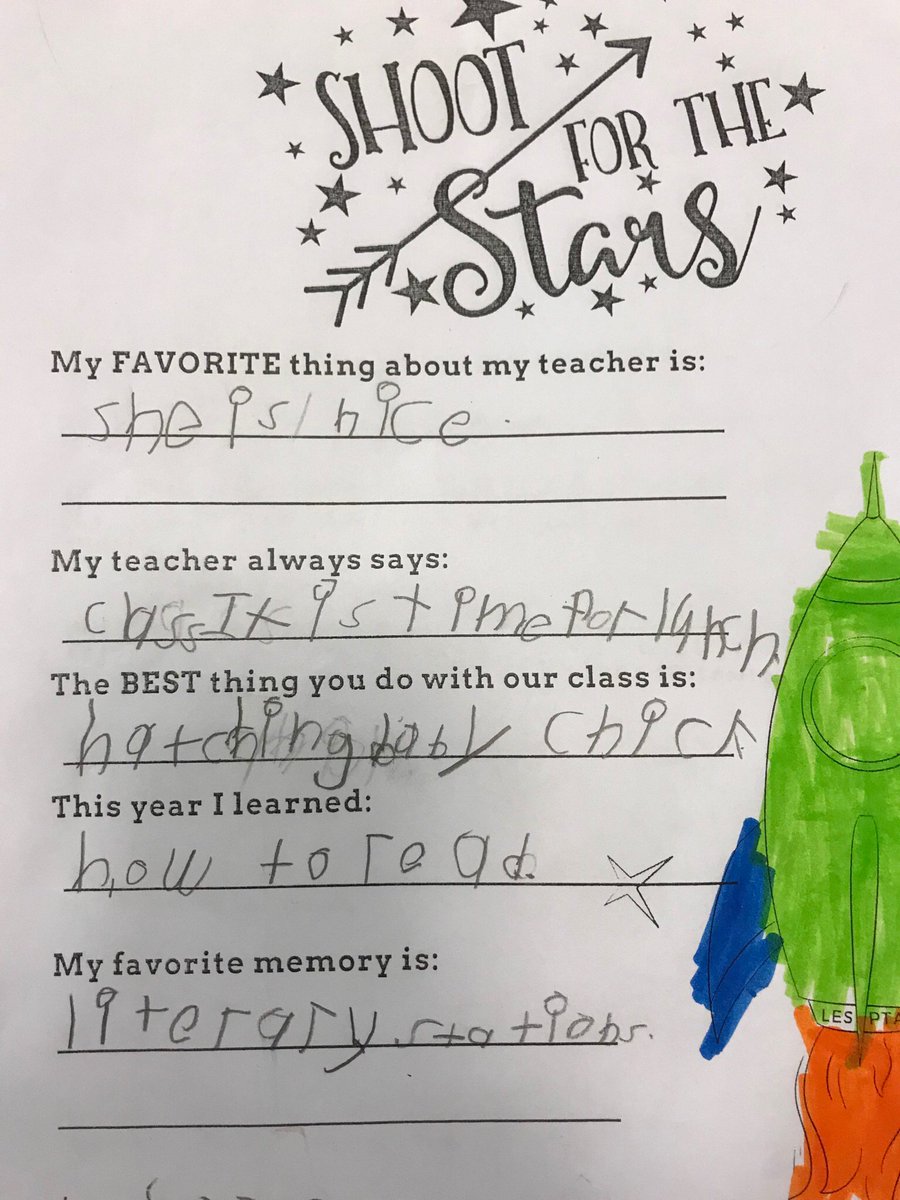 SHOOT
FOR THE
Stars
My FAVORITE thing about my teacher is:
she is nice.
My teacher always says:
class It is time for lunch
The BEST thing you do with our class is:
hatching baby chick
This year I learned:
how to read.
My favorite memory is:
literary stations.
LES PTA